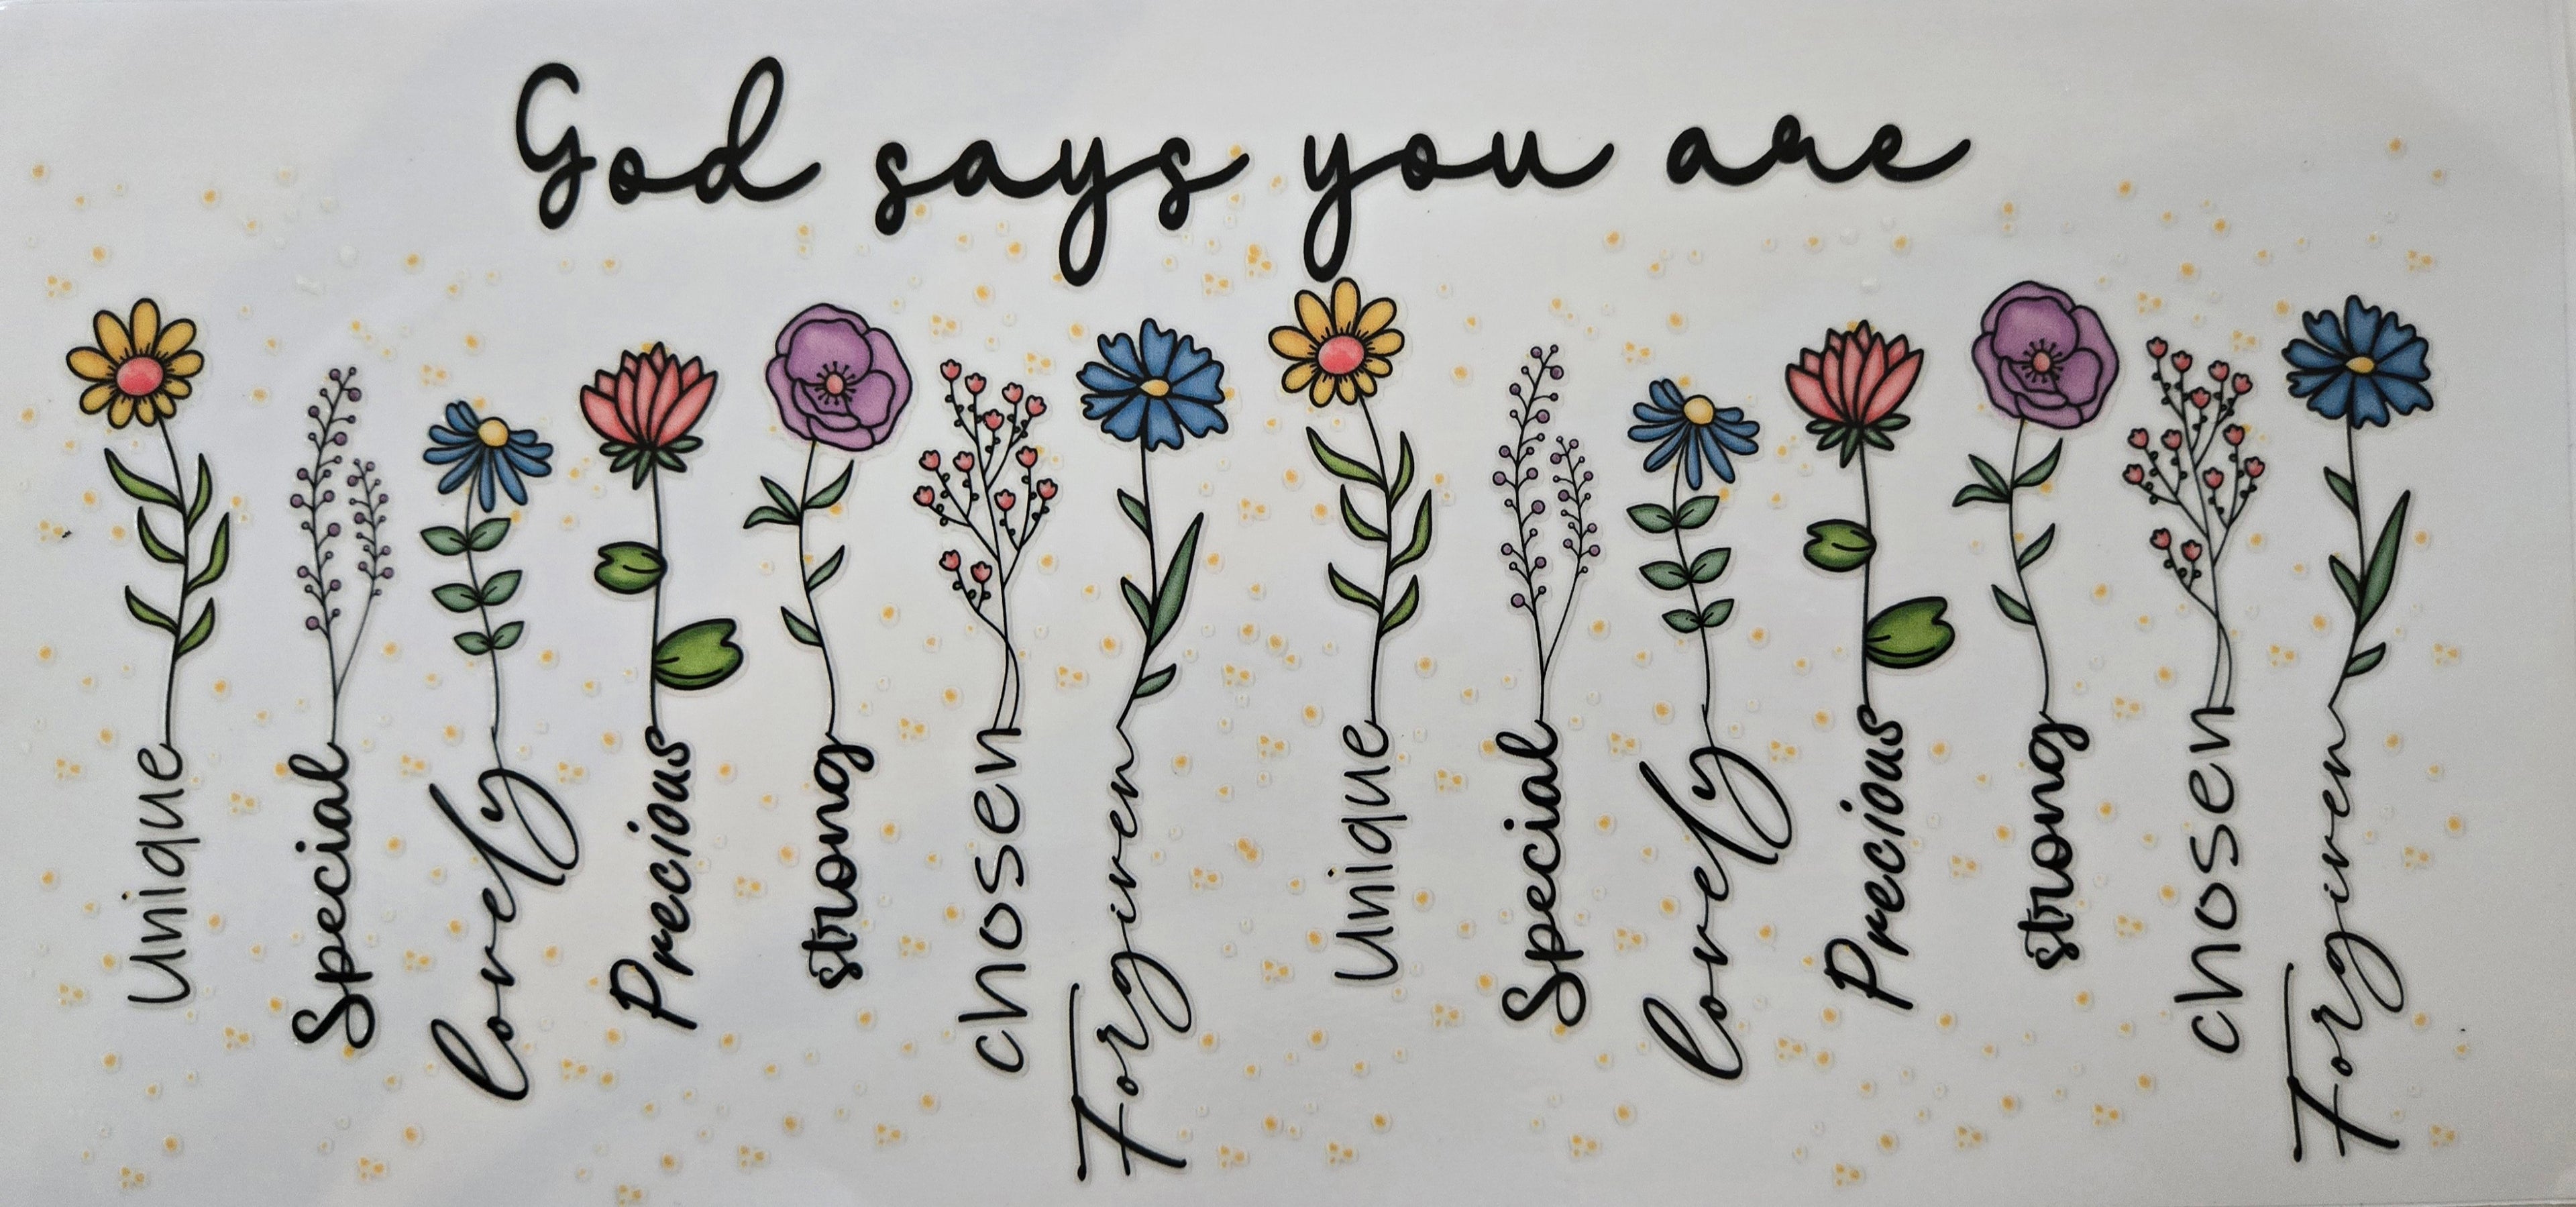 God says you are
Unique
Special
lovely
Precious
strong
chosen
Forgiven
Unique
Special
lovely
Precious
strong
chosen
Forgiven